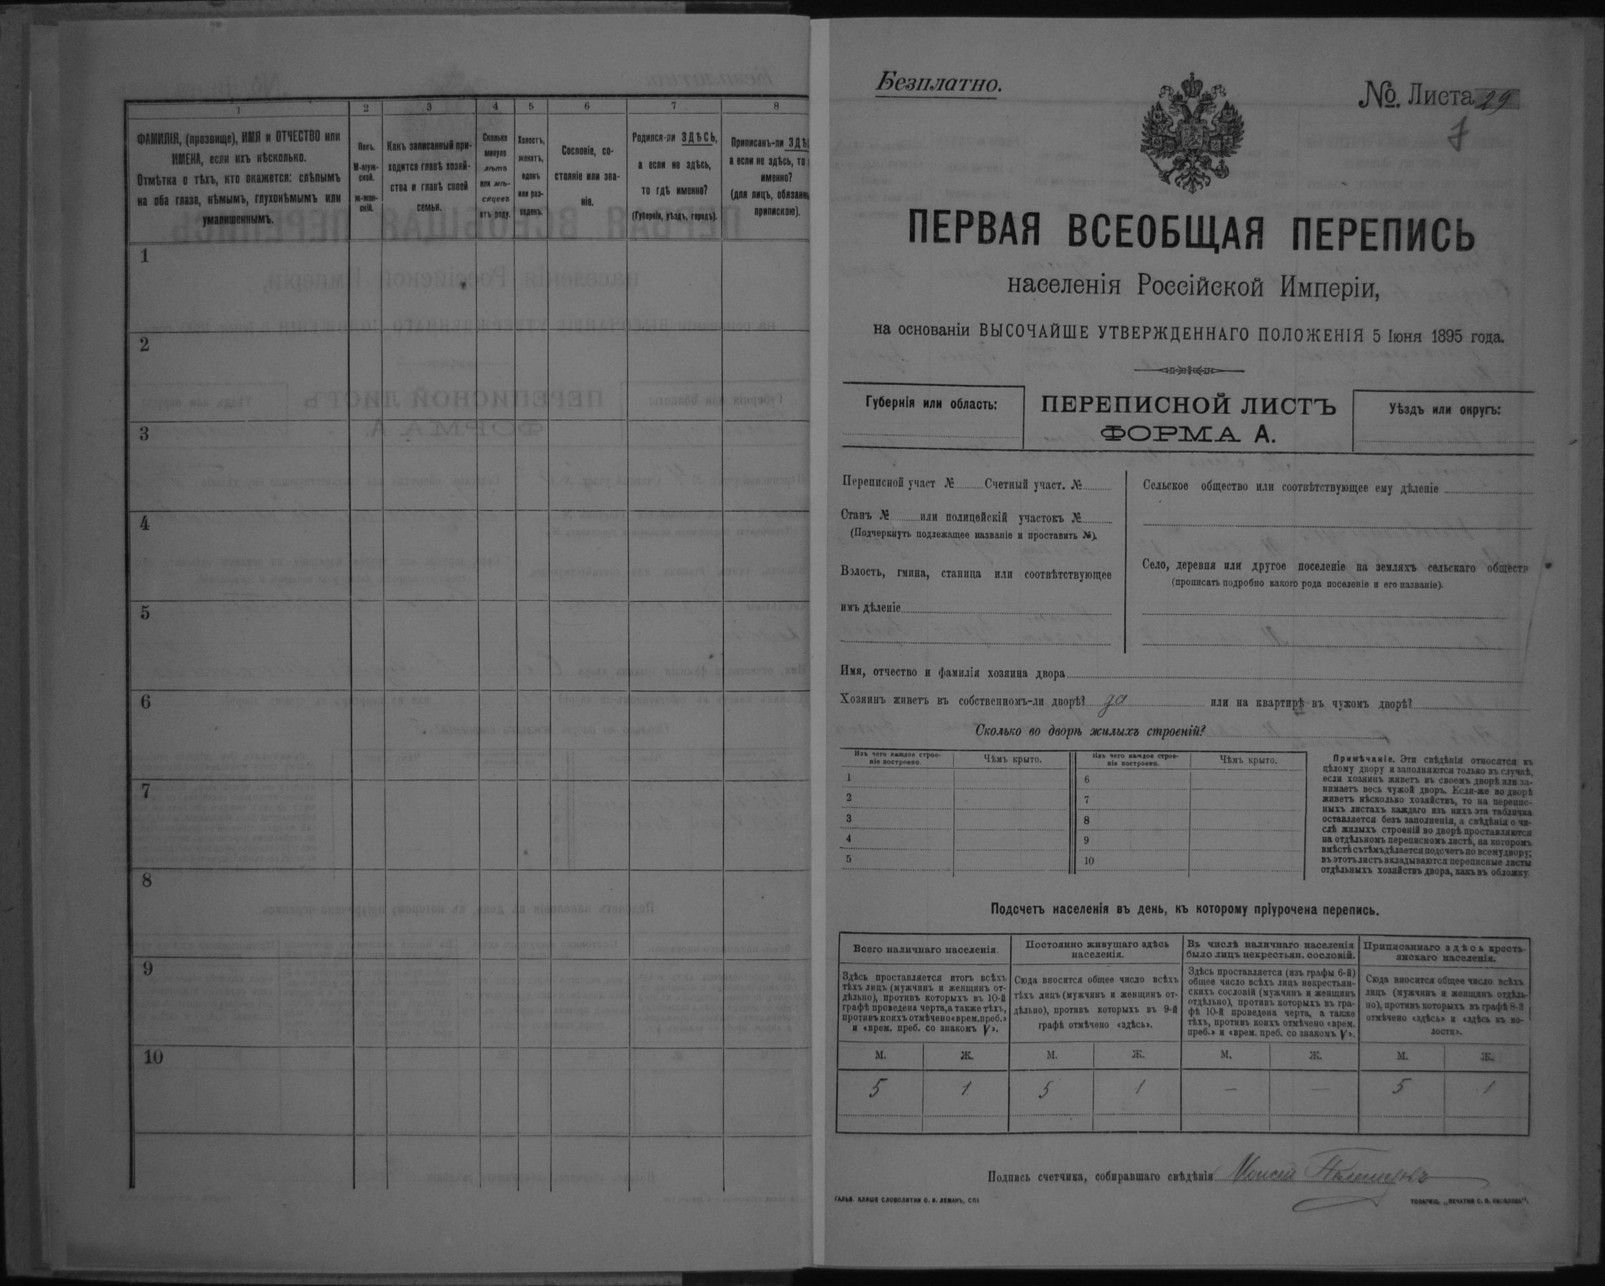 1
2
3
4
5
6
7
8
ФАМИЛІЯ, (прозвище), ИМЯ и ОТЧЕСТВО или
ИМЕНА, если ихъ нѣсколько.
Отмѣтка о тѣхъ, кто окажется: слѣпымъ
на оба глаза, нѣмымъ, глухонѣмымъ или
умалишеннымъ.
Полъ.
М-муж-
ской.
ж-жен-
скій.
Какъ записанный при-
ходится главѣ хозяй-
ства и главѣ своей
семьи.
Сколько
минуло
лѣтъ
или мѣ-
сяцевъ
отъ роду.
Холостъ,
женатъ,
вдовъ
или раз-
веденъ.
Сословіе, со-
стояніе или зва-
ніе.
Родился-ли ЗДѢСЬ,
а если не здѣсь,
то гдѣ именно?
(Губернія, уѣздъ, городъ).
Приписанъ-ли ЗДѢ
а если не здѣсь, то
именно?
(для лицъ, обязанн
припискою).
1
2
3
4
5
6
7
8
9
10
Безплатно.
№. Листа 29
7
ПЕРВАЯ ВСЕОБЩАЯ ПЕРЕПИСЬ
населенія Россійской Имперіи,
на основаніи ВЫСОЧАЙШЕ УТВЕРЖДЕННАГО ПОЛОЖЕНІЯ 5 Іюня 1895 года.
Губернія или область:
ПЕРЕПИСНОЙ ЛИСТЪ
ФОРМА А.
Уѣздъ или округъ:
Переписной участ № Счетный участ. №
Станъ № или полицейскій участокъ №
(Подчеркнуть подлежащее названіе и проставить №).
Волость, гмина, станица или соотвѣтствующее
имъ дѣленіе
Сельское общество или соотвѣтствующее ему дѣленіе
Село, деревня или другое поселеніе на земляхъ сельскаго обществ
(прописать подробно какого рода поселеніе и его названіе).
Имя, отчество и фамилія хозяина двора
Хозяинъ живетъ въ собственномъ-ли дворѣ? да или на квартирѣ въ чужомъ дворѣ?
Сколько во дворѣ жилыхъ строеній?
Изъ чего каждое строе-
ніе построено.
Чѣмъ крыто.
Изъ чего каждое строе-
ніе построено.
Чѣмъ крыто.
1
2
3
4
5
6
7
8
9
10
Примѣчаніе. Эти свѣдѣнія относятся къ
цѣлому двору и заполняются только въ случаѣ,
если хозяинъ живетъ въ своемъ дворѣ или за-
нимаетъ весь чужой дворъ. Если-же во дворѣ
живетъ нѣсколько хозяйствъ, то на перепис-
ныхъ листахъ каждаго изъ нихъ эта табличка
оставляется безъ заполненія, а свѣдѣнія о чи-
слѣ жилыхъ строеній во дворѣ проставляются
на отдѣльномъ переписномъ листѣ, на которомъ
вмѣстѣ съ тѣмъ дѣлается подсчетъ по всему двору;
въ этотъ листъ вкладываются переписные листы
отдѣльныхъ хозяйствъ двора, какъ въ обложку.
Подсчетъ населенія въ день, къ которому пріурочена перепись.
Всего наличнаго населенія.
Постоянно живущаго здѣсь
населенія.
Въ числѣ наличнаго населенія
было лицъ некрестьян. сословій.
Приписаннаго здѣсь кресть-
янскаго населенія.
Здѣсь проставляется итогъ всѣхъ
тѣхъ лицъ (мужчинъ и женщинъ от-
дѣльно), противъ которыхъ въ 10-й
графѣ проведена черта, а также тѣхъ,
противъ коихъ отмѣчено «врем. преб.»
и «врем. преб. со знакомъ V».
Сюда вносится общее число всѣхъ
тѣхъ лицъ (мужчинъ и женщинъ от-
дѣльно), противъ которыхъ въ 9-й
графѣ отмѣчено «здѣсь».
Здѣсь проставляется (изъ графы 6-й)
общее число всѣхъ лицъ некрестьян-
скихъ сословій (мужчинъ и женщинъ
отдѣльно), противъ которыхъ въ гра-
фѣ 10-й проведена черта, а также
тѣхъ, противъ коихъ отмѣчено «врем.
преб.» и «врем. преб. со знакомъ V».
Сюда вносится общее число всѣхъ
лицъ (мужчинъ и женщинъ отдѣль-
но), противъ которыхъ въ графѣ 8-й
отмѣчено «здѣсь» и «здѣсь въ во-
лости».
М. Ж. М. Ж. М. Ж. М. Ж.
5 1 5 1 — — 5 1
Подпись счетчика, собиравшаго свѣдѣнія Моисей
ГАЛЬВ. КЛИШЕ СЛОВОЛИТНИ О. И. ЛЕМАНЪ, СПБ
ТОВАРИЩ. „ПЕЧАТНЯ С. П. ЯКОВЛЕВА“.